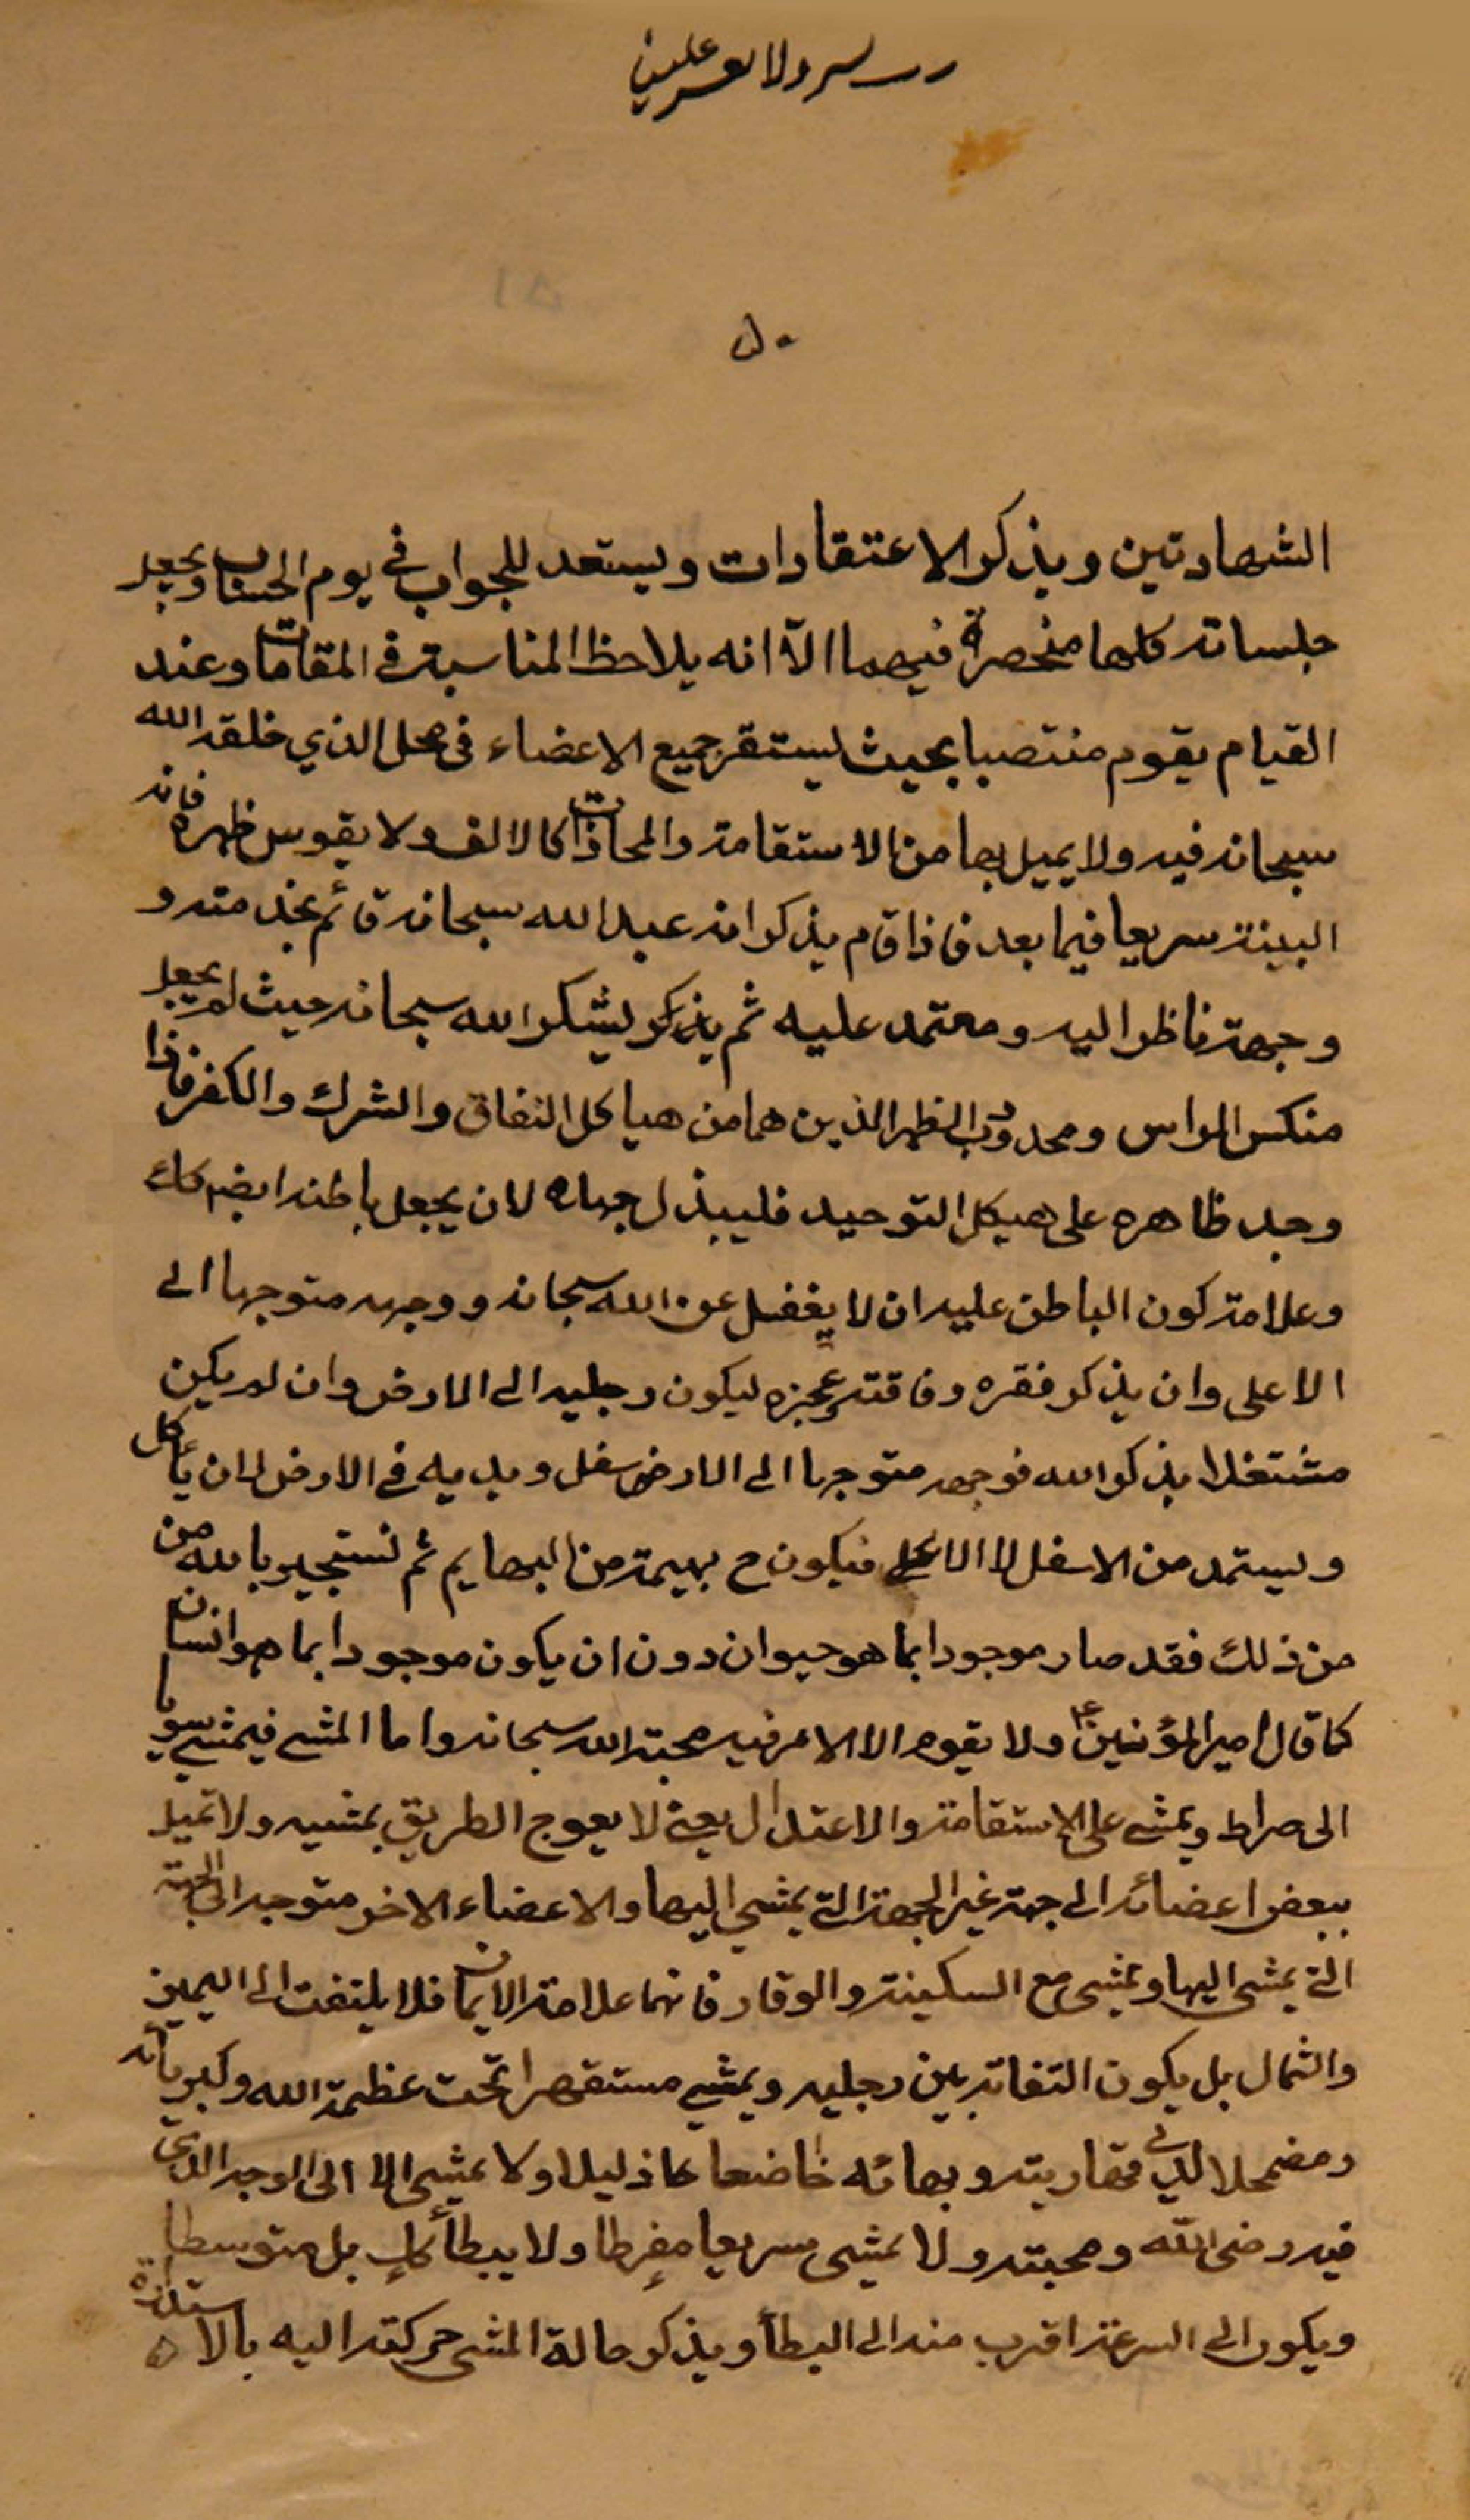 رب يسر ولا تعسر علينا
٥٠
الشهادتين ويذكر الاعتقادات ويستعد للجواب في يوم الحساب ويجعل
جلساته كلها منحصرة فيهما الّا انه يلاحظ المناسبة في المقامات وعند
القيام يقوم منتصبا بحيث يستقر جميع الاعضاء في محل الذي خلقه الله
سبحانه فيه ولا يميل بها من الاستقامة والمحاذات كالالف ولا يقوس ظهره فانه
البينة سريعا فيما بعد فاذا قام يذكر انه عبد الله سبحانه قائم بخدمته و
وجهة ناظر اليه ومعتمد عليه ثم يذكر يشكر الله سبحانه حيث لم يجعل
منكس الراس ومحدودب الظهر الذين هما من هياكل النفاق والشرك والكفر فاذا
وجد ظاهره على هيكل التوحيد فليبذل جهده لان يجعل باطنه ايضا كك
وعلامة كون الباطن عليه ان لا يغفل عن الله سبحانه ووجهه متوجها الى
الاعلى وان يذكر فقره وفاقته وعجزه ليكون رجليه الى الارض وان لم يكن
مشتغلا بذكر الله فوجهه متوجها الى الارض سفل ويديه في الارض لان يأكل
ويستمد من الاسفل لا الاعلى فيكون ح بهيمة من البهايم ثم نستجير بالله من
من ذلك فقد صار موجودا بما هو حيوان دون ان يكون موجودا بما هو انسان
كما قال امير المؤمنين ع ولا يقوم الا الامر فيه محبة الله سبحانه واما المشي فيمشي سويا
الى صراط ويمشي على الاستقامة والاعتدال يعني لا يعوج الطريق بمشيه ولا تميل
ببعض اعضائه الى جهة غير الجهة التي يمشي اليها والاعضاء الاخر متوجه الى الجهة
التي يمشي اليها ويمشي مع السكينة والوقار فانهما علامة الايمان فلا يلتفت الى اليمين
والشمال بل يكون التفاته بين رجليه ويمشي مستقهرا تحت عظمة الله وكبريائه
ومضمحلا لدى قهاريته وبهائه خاضعا ذليلا ولا يمشي الا الى الوجه الذي
فيه رضى الله ومحبته ولا يمشي سريعا مفرطا ولا يبطأ كك بل متوسطا
ويكون الى السرعة اقرب منه الى البطأ ويذكر حالة المشي حركته اليه بالاستدارة